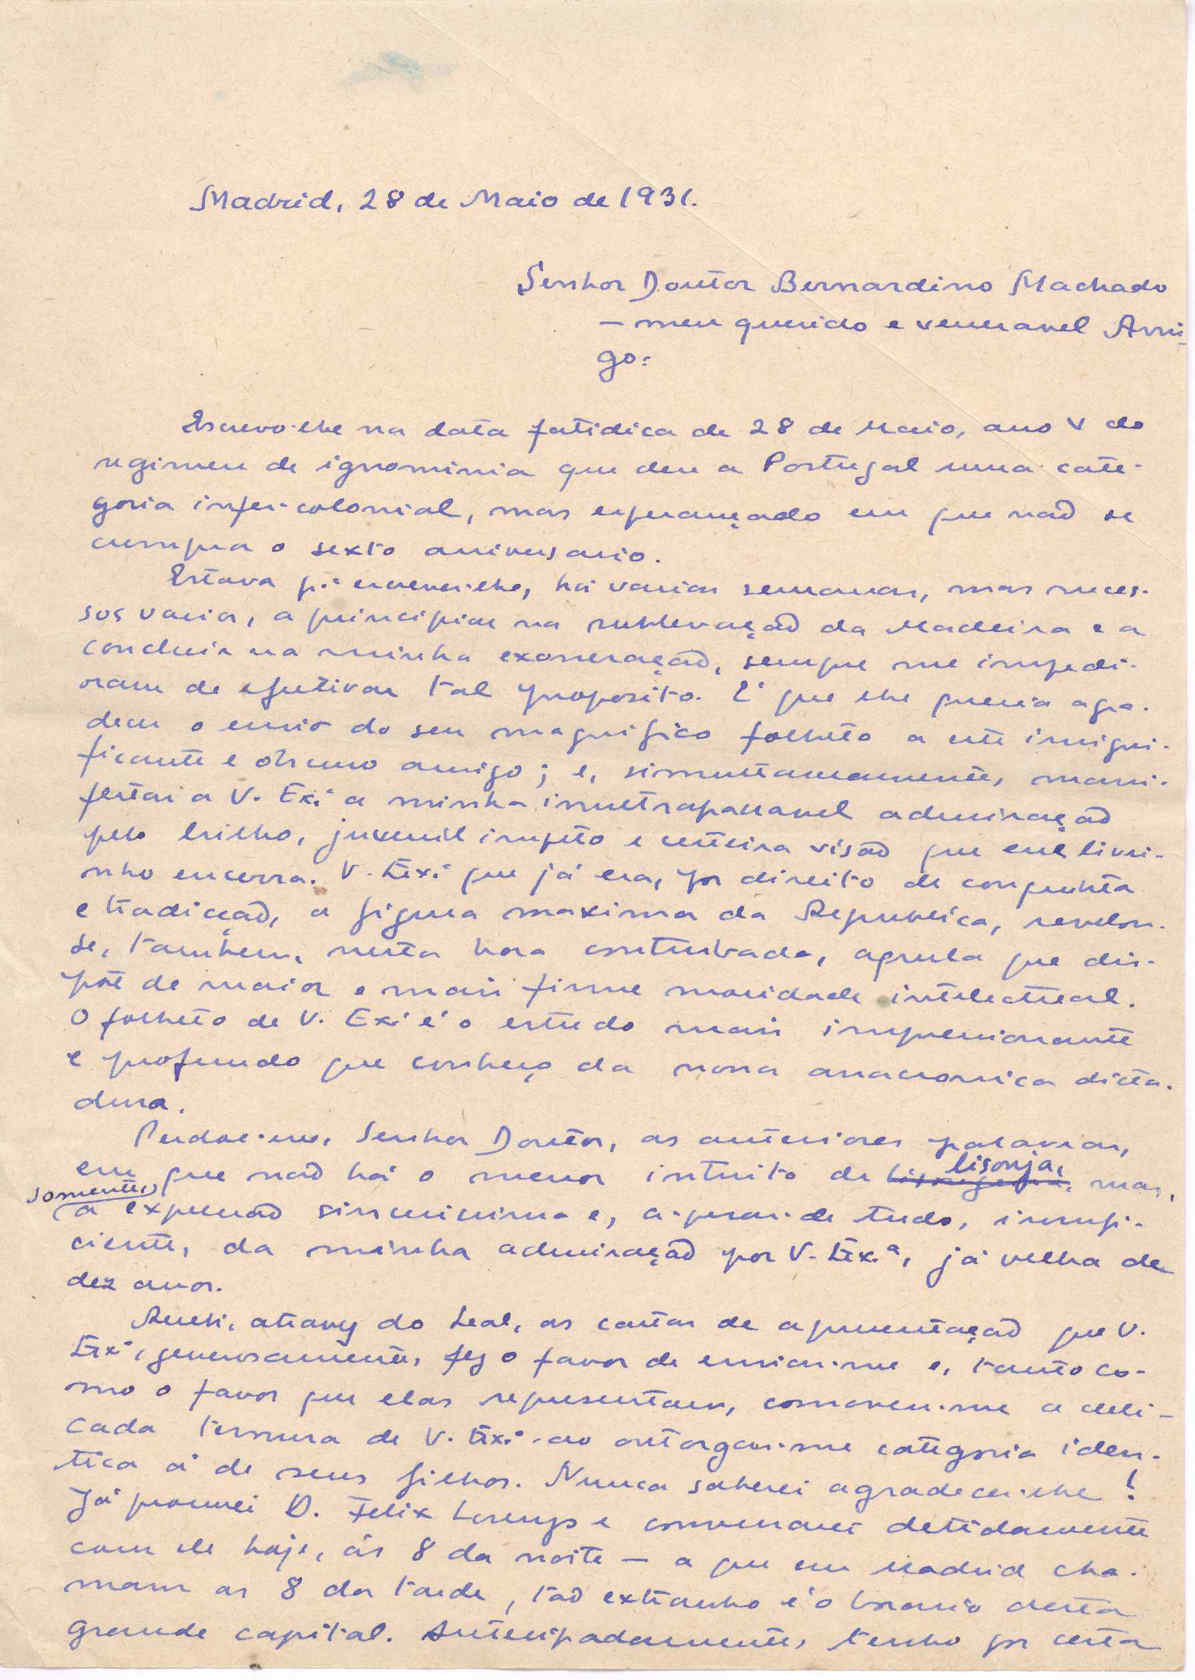 Madrid, 28 de Maio de 1931.
Senhor Doutor Bernardino Machado
— meu querido e veneravel Ami-
go:
Escrevo-lhe na data fatidica de 28 de Maio, ano V do
regimen de ignominia que deu a Portugal uma cate-
goria infer-colonial, mas esperançado em que não se
cumpra o sexto aniversario.
Estava p.ª escrever-lhe, há varias semanas, mas suces-
sos varios, a principiar na sublevação da Madeira e a
concluir na minha exoneração, sempre me impedi-
ram de efetivar tal proposito. É que lhe queria agra-
decer o envio do seu magnifico folheto a este insigni-
ficante e obscuro amigo; e, simultaneamente, mani-
festar a V. Ex.ª a minha inultrapassavel admiração
pelo brilho, juvenil impeto e certeira visão que esse livri-
nho encerra. V. Ex.ª que já era, por direito de conquista
e tradicção, a figura maxima da Republica, revelou-
se, tambem, nesta hora conturbada, aquela que dis-
põe de maior e mais firme mocidade intelectual.
O folheto de V. Ex.ª é o estudo mais impressionante
e profundo que conheço da nossa anacronica dicta-
dura.
Perdoe-me, Senhor Doutor, as anteriores palavras,
em que não há o menor intuito de lisonja, mas,
somente, a expressão sincerissima e, a-pesar-de tudo, insufi-
ciente, da minha admiração por V. Ex.ª, já velha de
dez anos.
Recebi, atravez do Leal, as cartas de apresentação que V.
Ex.ª, generosamente, fez o favor de enviar-me e, tanto co-
mo o favor que elas representam, comoveu-me a deli-
cada ternura de V. Ex.ª ao outorgar-me categoria iden-
tica á de seus filhos. Nunca saberei agradecer-lhe!
Já procurei D. Felix Lorenzo e conversarei detidamente
com ele hoje, ás 8 da noite — a que em Madrid cha-
mam as 8 da tarde, tão extranho é o horario desta
grande capital. Antecipadamente, tenho por certa